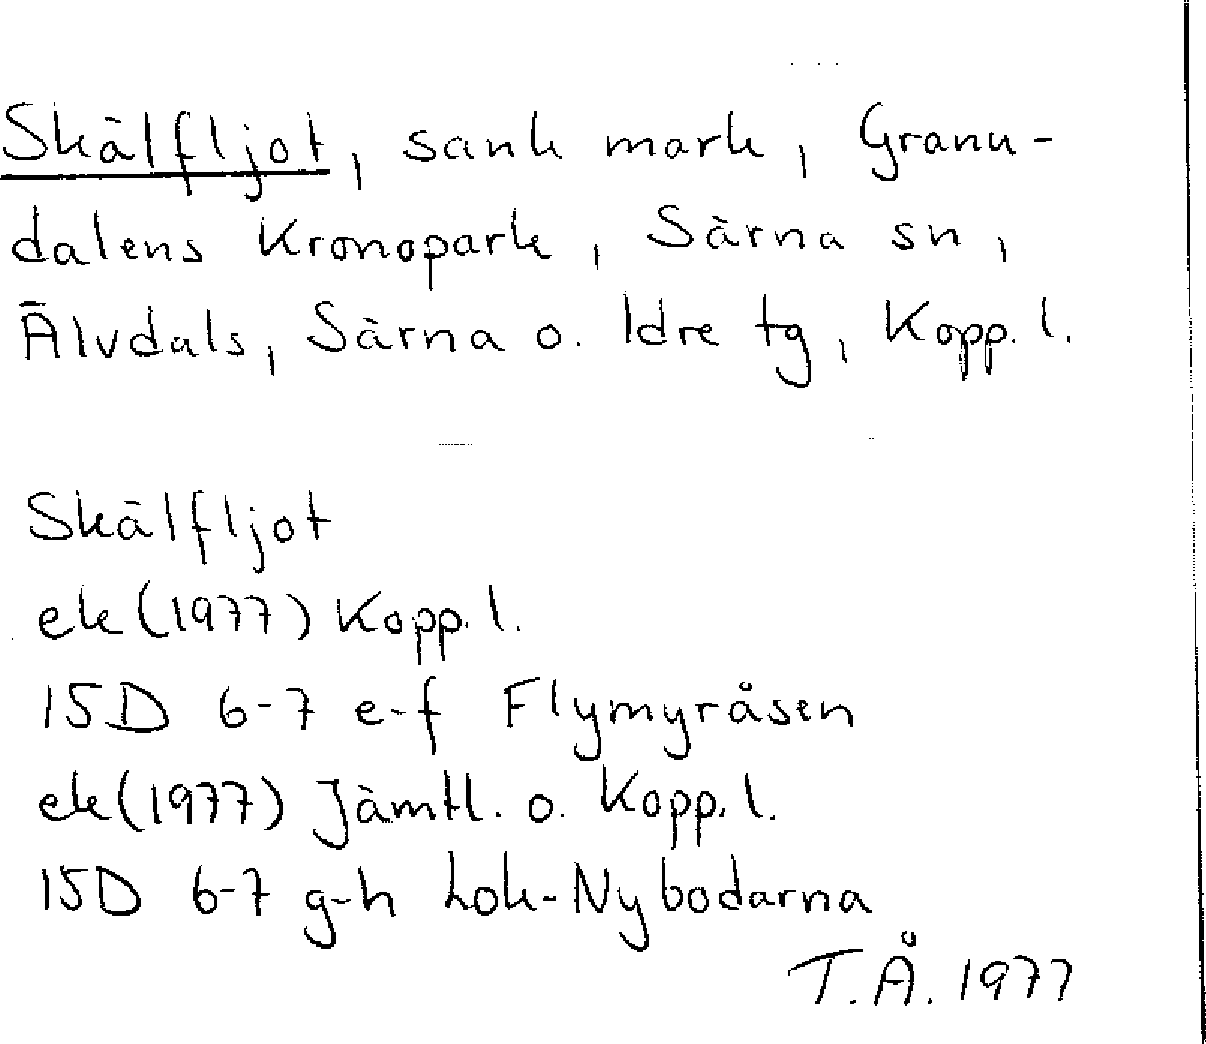 Skälfljot, sank mark, Granu-
dalens Kronopark, Särna sn,
Älvdals, Särna o. Idre tg, Kopp. l.
Skälfljot
ek (1977) Kopp. l.
15D 6-7 e-f Flymyråsen
ek (1977) Jämtl. o. Kopp. l.
15D 6-7 g-h Lok-Nybodarna
T.Å. 1977